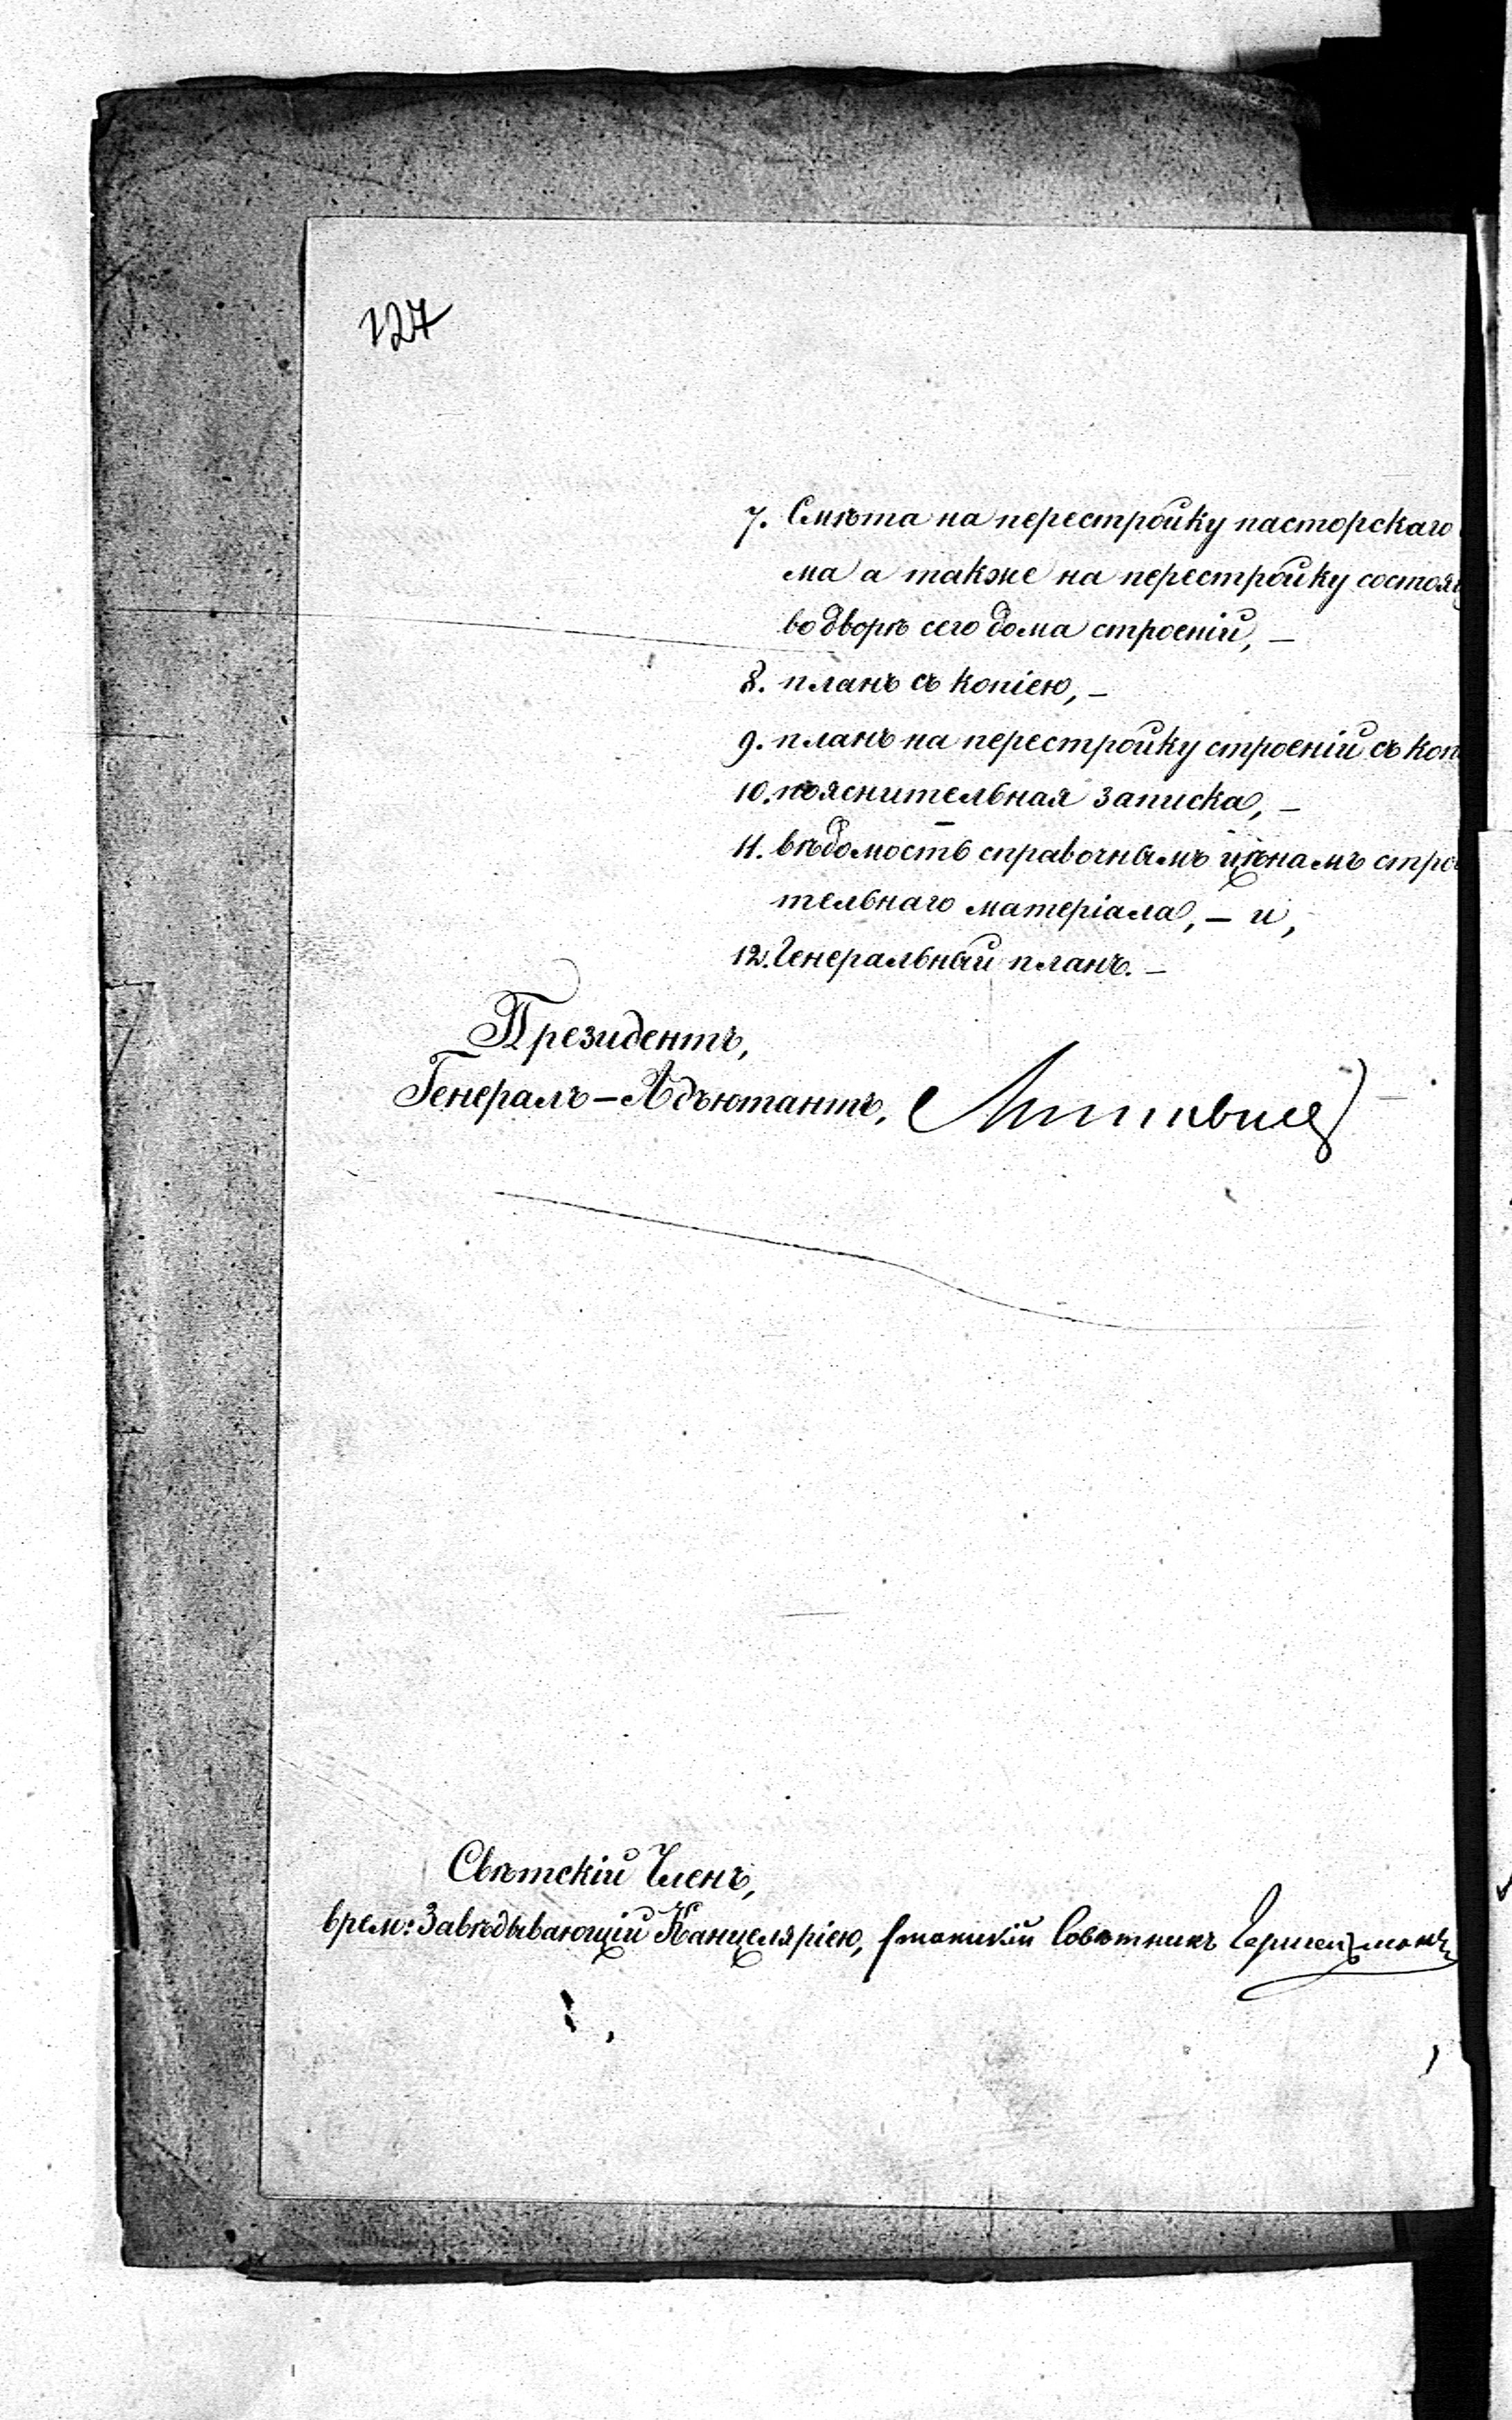 127
7. Смѣта на перестройку пасторскаго
ма а также на перестройку состоя
во дворѣ сего дома строеній, —
8. планъ съ копіею, —
9. планъ на перестройку строеній съ коп
10. пояснительная записка, —
11. вѣдомость справочнымъ цѣнамъ стро
тельнаго матеріала, — и,
12. Генеральный планъ. —
Президентъ,
Генералъ-Адъютантъ,
Свѣтскій Членъ,
врем: Завѣдывающій Канцеляріею, Статскій Совѣтникъ